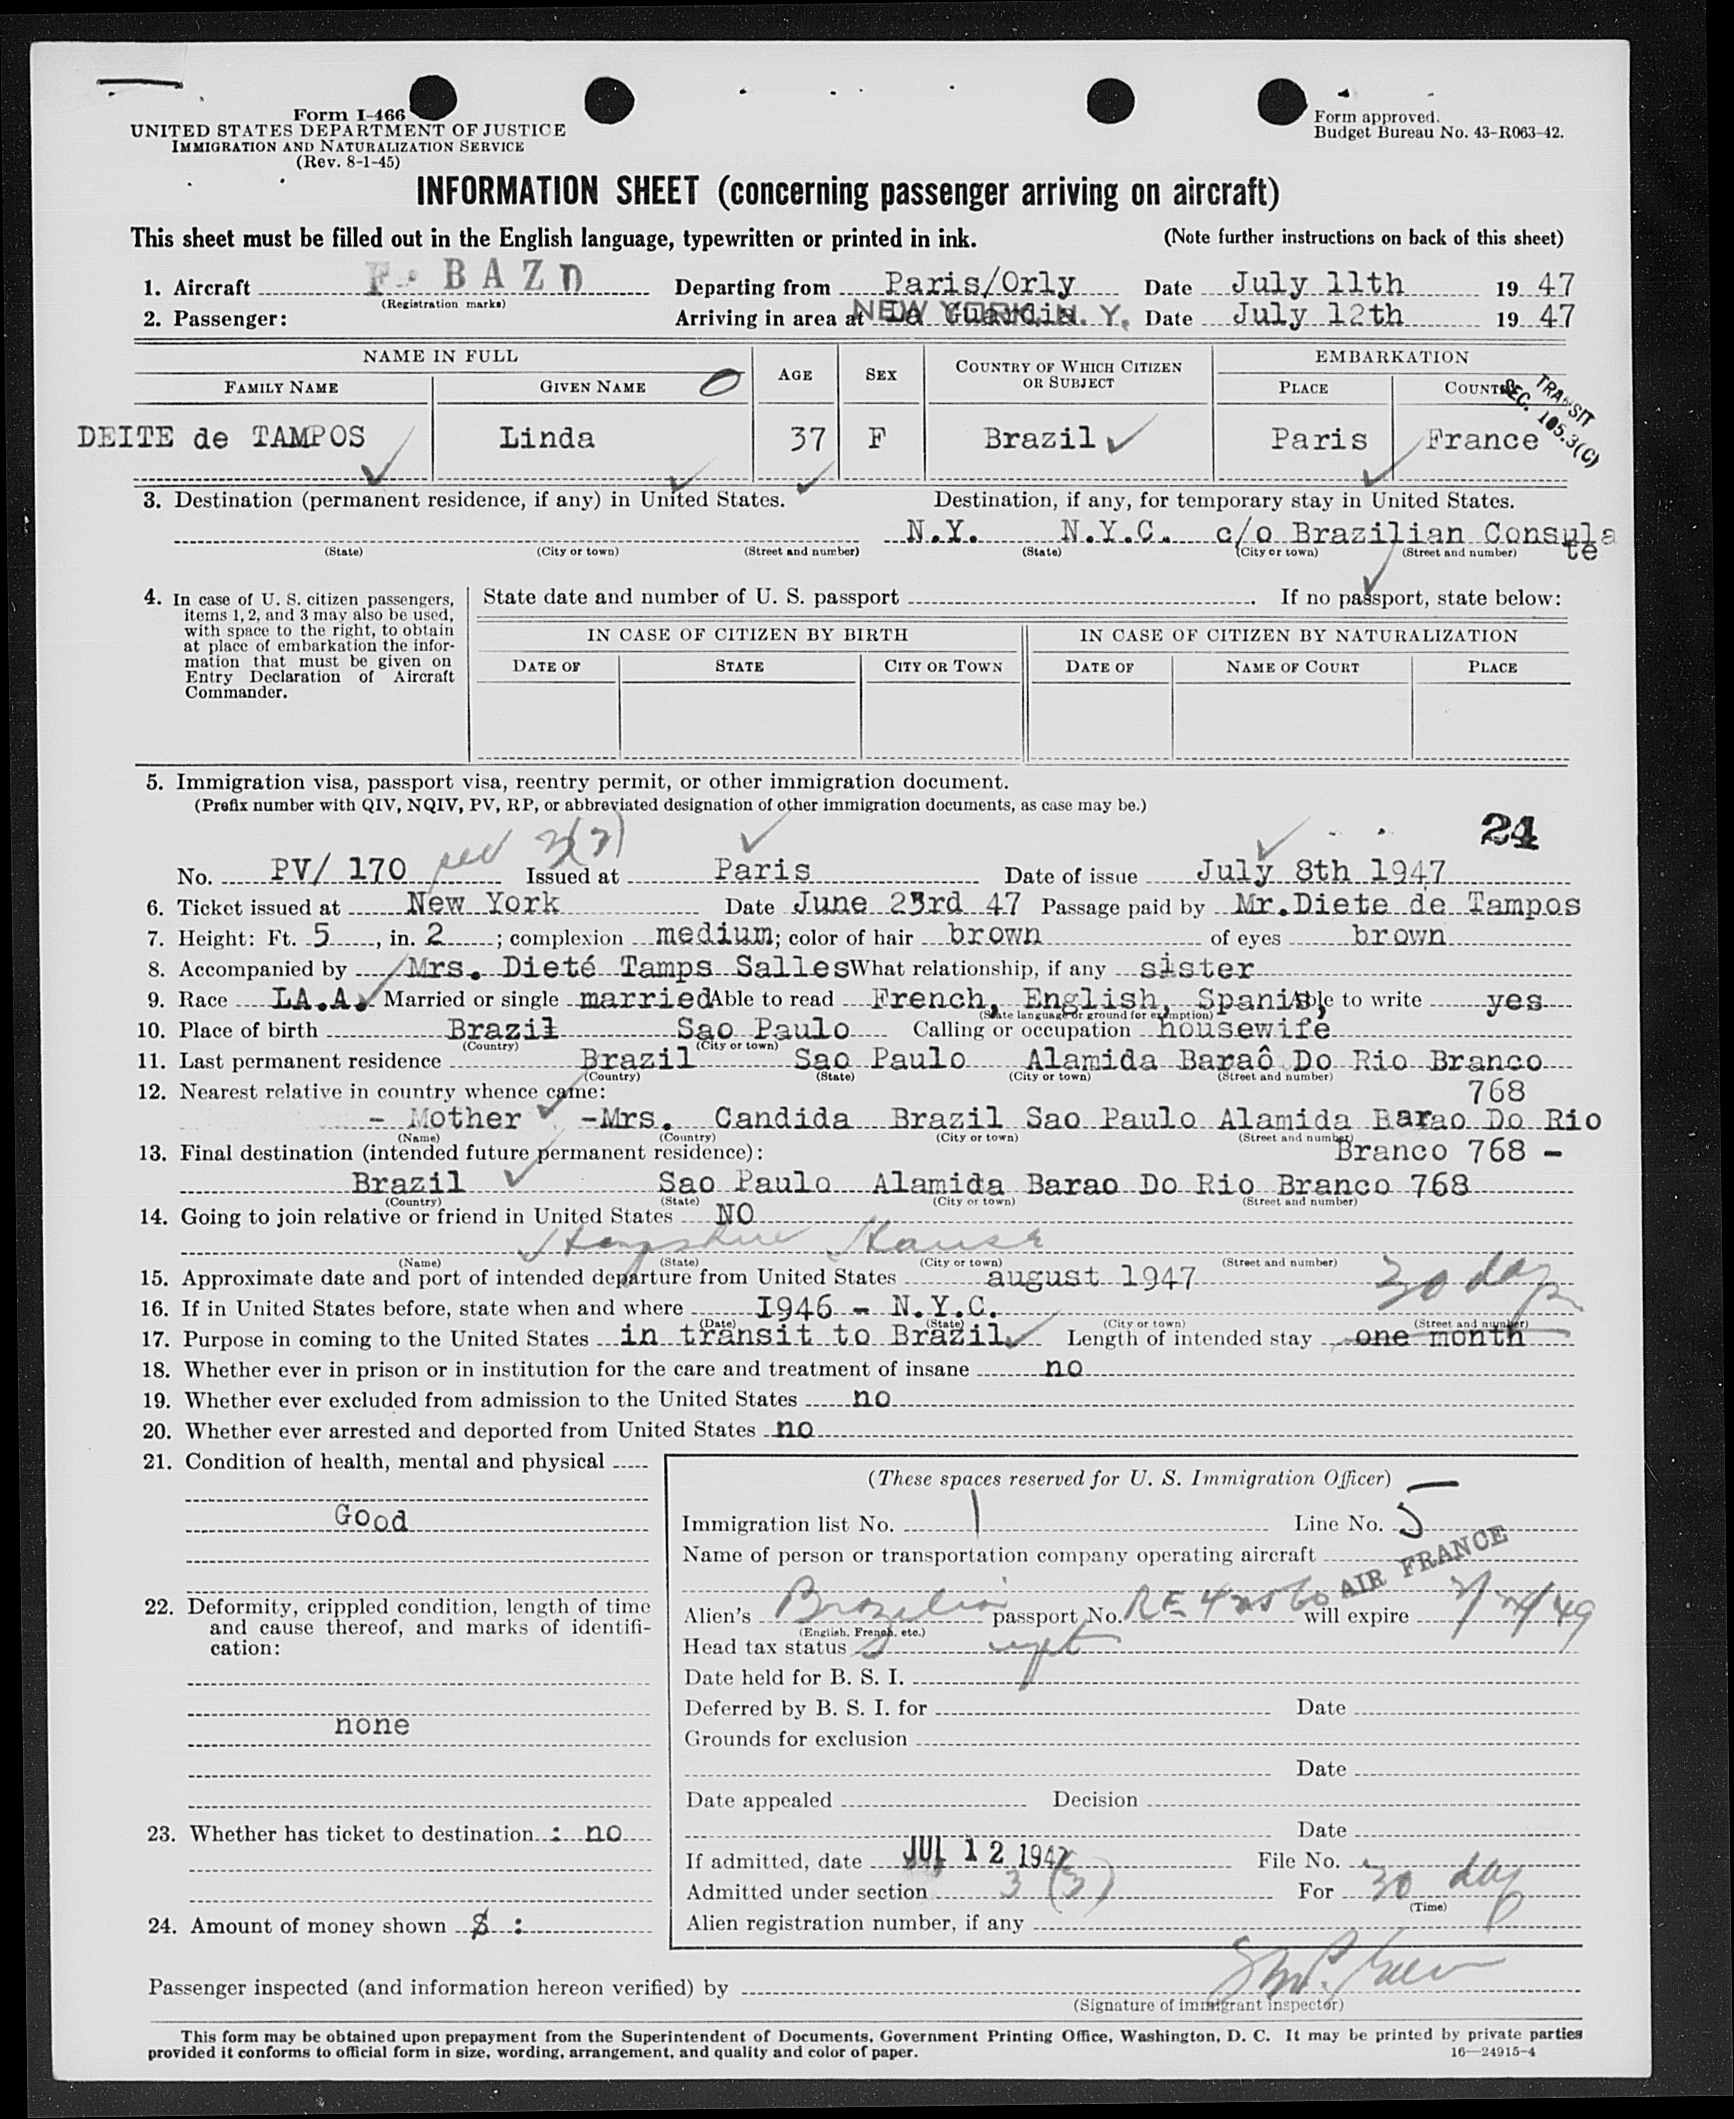 Form I-466
UNITED STATES DEPARTMENT OF JUSTICE
IMMIGRATION AND NATURALIZATION SERVICE
(Rev. 8-1-45)
Form approved.
Budget Bureau No. 43-R063-42.
INFORMATION SHEET (concerning passenger arriving on aircraft)
This sheet must be filled out in the English language, typewritten or printed in ink. (Note further instructions on back of this sheet)
1. Aircraft F-BAZD Departing from Paris/Orly Date July 11th 19 47
(Registration marks)
2. Passenger: Arriving in area at La Guardia NEW YORK, N. Y. Date July 12th 19 47
NAME IN FULL AGE SEX COUNTRY OF WHICH CITIZEN OR SUBJECT EMBARKATION
FAMILY NAME GIVEN NAME PLACE COUNTRY
TRANSIT
SEC. 105.3(C)
DEITE de TAMPOS Linda 37 F Brazil Paris France
3. Destination (permanent residence, if any) in United States. Destination, if any, for temporary stay in United States.
N.Y. N.Y.C. c/o Brazilian Consula
te
(State) (City or town) (Street and number) (State) (City or town) (Street and number)
4. In case of U. S. citizen passengers, items 1, 2, and 3 may also be used, with space to the right, to obtain at place of embarkation the information that must be given on Entry Declaration of Aircraft Commander.
State date and number of U. S. passport . If no passport, state below:
IN CASE OF CITIZEN BY BIRTH IN CASE OF CITIZEN BY NATURALIZATION
DATE OF STATE CITY OR TOWN DATE OF NAME OF COURT PLACE
5. Immigration visa, passport visa, reentry permit, or other immigration document.
(Prefix number with QIV, NQIV, PV, RP, or abbreviated designation of other immigration documents, as case may be.)
24
No. PV/ 170 Issued at Paris Date of issue July 8th 1947
6. Ticket issued at New York Date June 23rd 47 Passage paid by Mr.Diete de Tampos
7. Height: Ft. 5, in. 2; complexion medium; color of hair brown of eyes brown
8. Accompanied by Mrs. Dieté Tamps Salles What relationship, if any sister
9. Race LA.A. Married or single married Able to read French, English, Spanis, Able to write yes
(State language or ground for exemption)
10. Place of birth Brazil Sao Paulo Calling or occupation housewife
(Country) (City or town)
11. Last permanent residence Brazil Sao Paulo Alamida Baraô Do Rio Branco
(Country) (State) (City or town) (Street and number)
768
12. Nearest relative in country whence came:
- Mother -Mrs. Candida Brazil Sao Paulo Alamida Barao Do Rio
(Name) (Country) (City or town) (Street and number)
Branco 768 -
13. Final destination (intended future permanent residence):
Brazil Sao Paulo Alamida Barao Do Rio Branco 768
(Country) (State) (City or town) (Street and number)
14. Going to join relative or friend in United States NO
(Name) (State) (City or town) (Street and number)
15. Approximate date and port of intended departure from United States august 1947
30 days
16. If in United States before, state when and where 1946 - N.Y.C.
(Date) (State) (City or town) (Street and number)
17. Purpose in coming to the United States in transit to Brazil Length of intended stay one month
18. Whether ever in prison or in institution for the care and treatment of insane no
19. Whether ever excluded from admission to the United States no
20. Whether ever arrested and deported from United States no
21. Condition of health, mental and physical
Good
22. Deformity, crippled condition, length of time and cause thereof, and marks of identification:
none
23. Whether has ticket to destination : no
24. Amount of money shown $ :
(These spaces reserved for U. S. Immigration Officer)
Immigration list No. 1 Line No. 5
Name of person or transportation company operating aircraft
AIR FRANCE
Alien's Brazilian passport No. will expire
(English, French, etc.)
Head tax status
Date held for B. S. I.
Deferred by B. S. I. for Date
Grounds for exclusion
Date
Date appealed Decision
Date
If admitted, date JUL 12 1947 File No.
Admitted under section 3 (3) For 30 days
(Time)
Alien registration number, if any
Passenger inspected (and information hereon verified) by
(Signature of immigrant inspector)
This form may be obtained upon prepayment from the Superintendent of Documents, Government Printing Office, Washington, D. C. It may be printed by private parties
provided it conforms to official form in size, wording, arrangement, and quality and color of paper.
16—24915-4